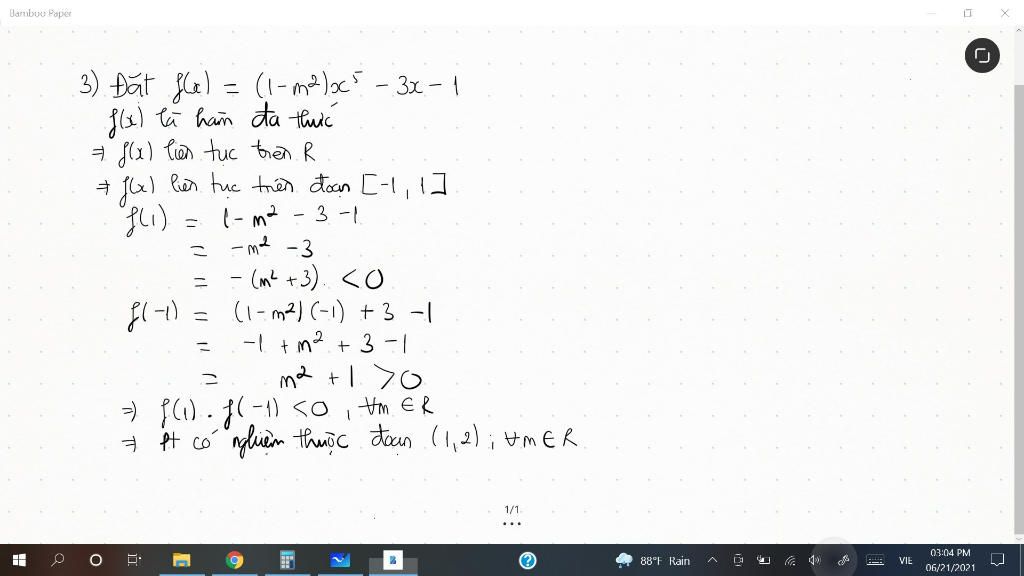 Bamboo Paper
3) Đặt f(x) = (1-m²)x⁵ - 3x - 1
f(x) là hàm đa thức
⇒ f(x) liên tục trên R
⇒ f(x) liên tục trên đoạn [-1, 1]
f(1) = 1 - m² - 3 - 1
= -m² - 3
= -(m² + 3). < 0
f(-1) = (1-m²)(-1) + 3 - 1
= -1 + m² + 3 - 1
= m² + 1 > 0
⇒ f(1) . f(-1) < 0 , ∀m ∈ R
⇒ Pt có nghiệm thuộc đoạn (1,2) ; ∀m ∈ R
1/1
88°F Rain
VIE
03:04 PM
06/21/2021